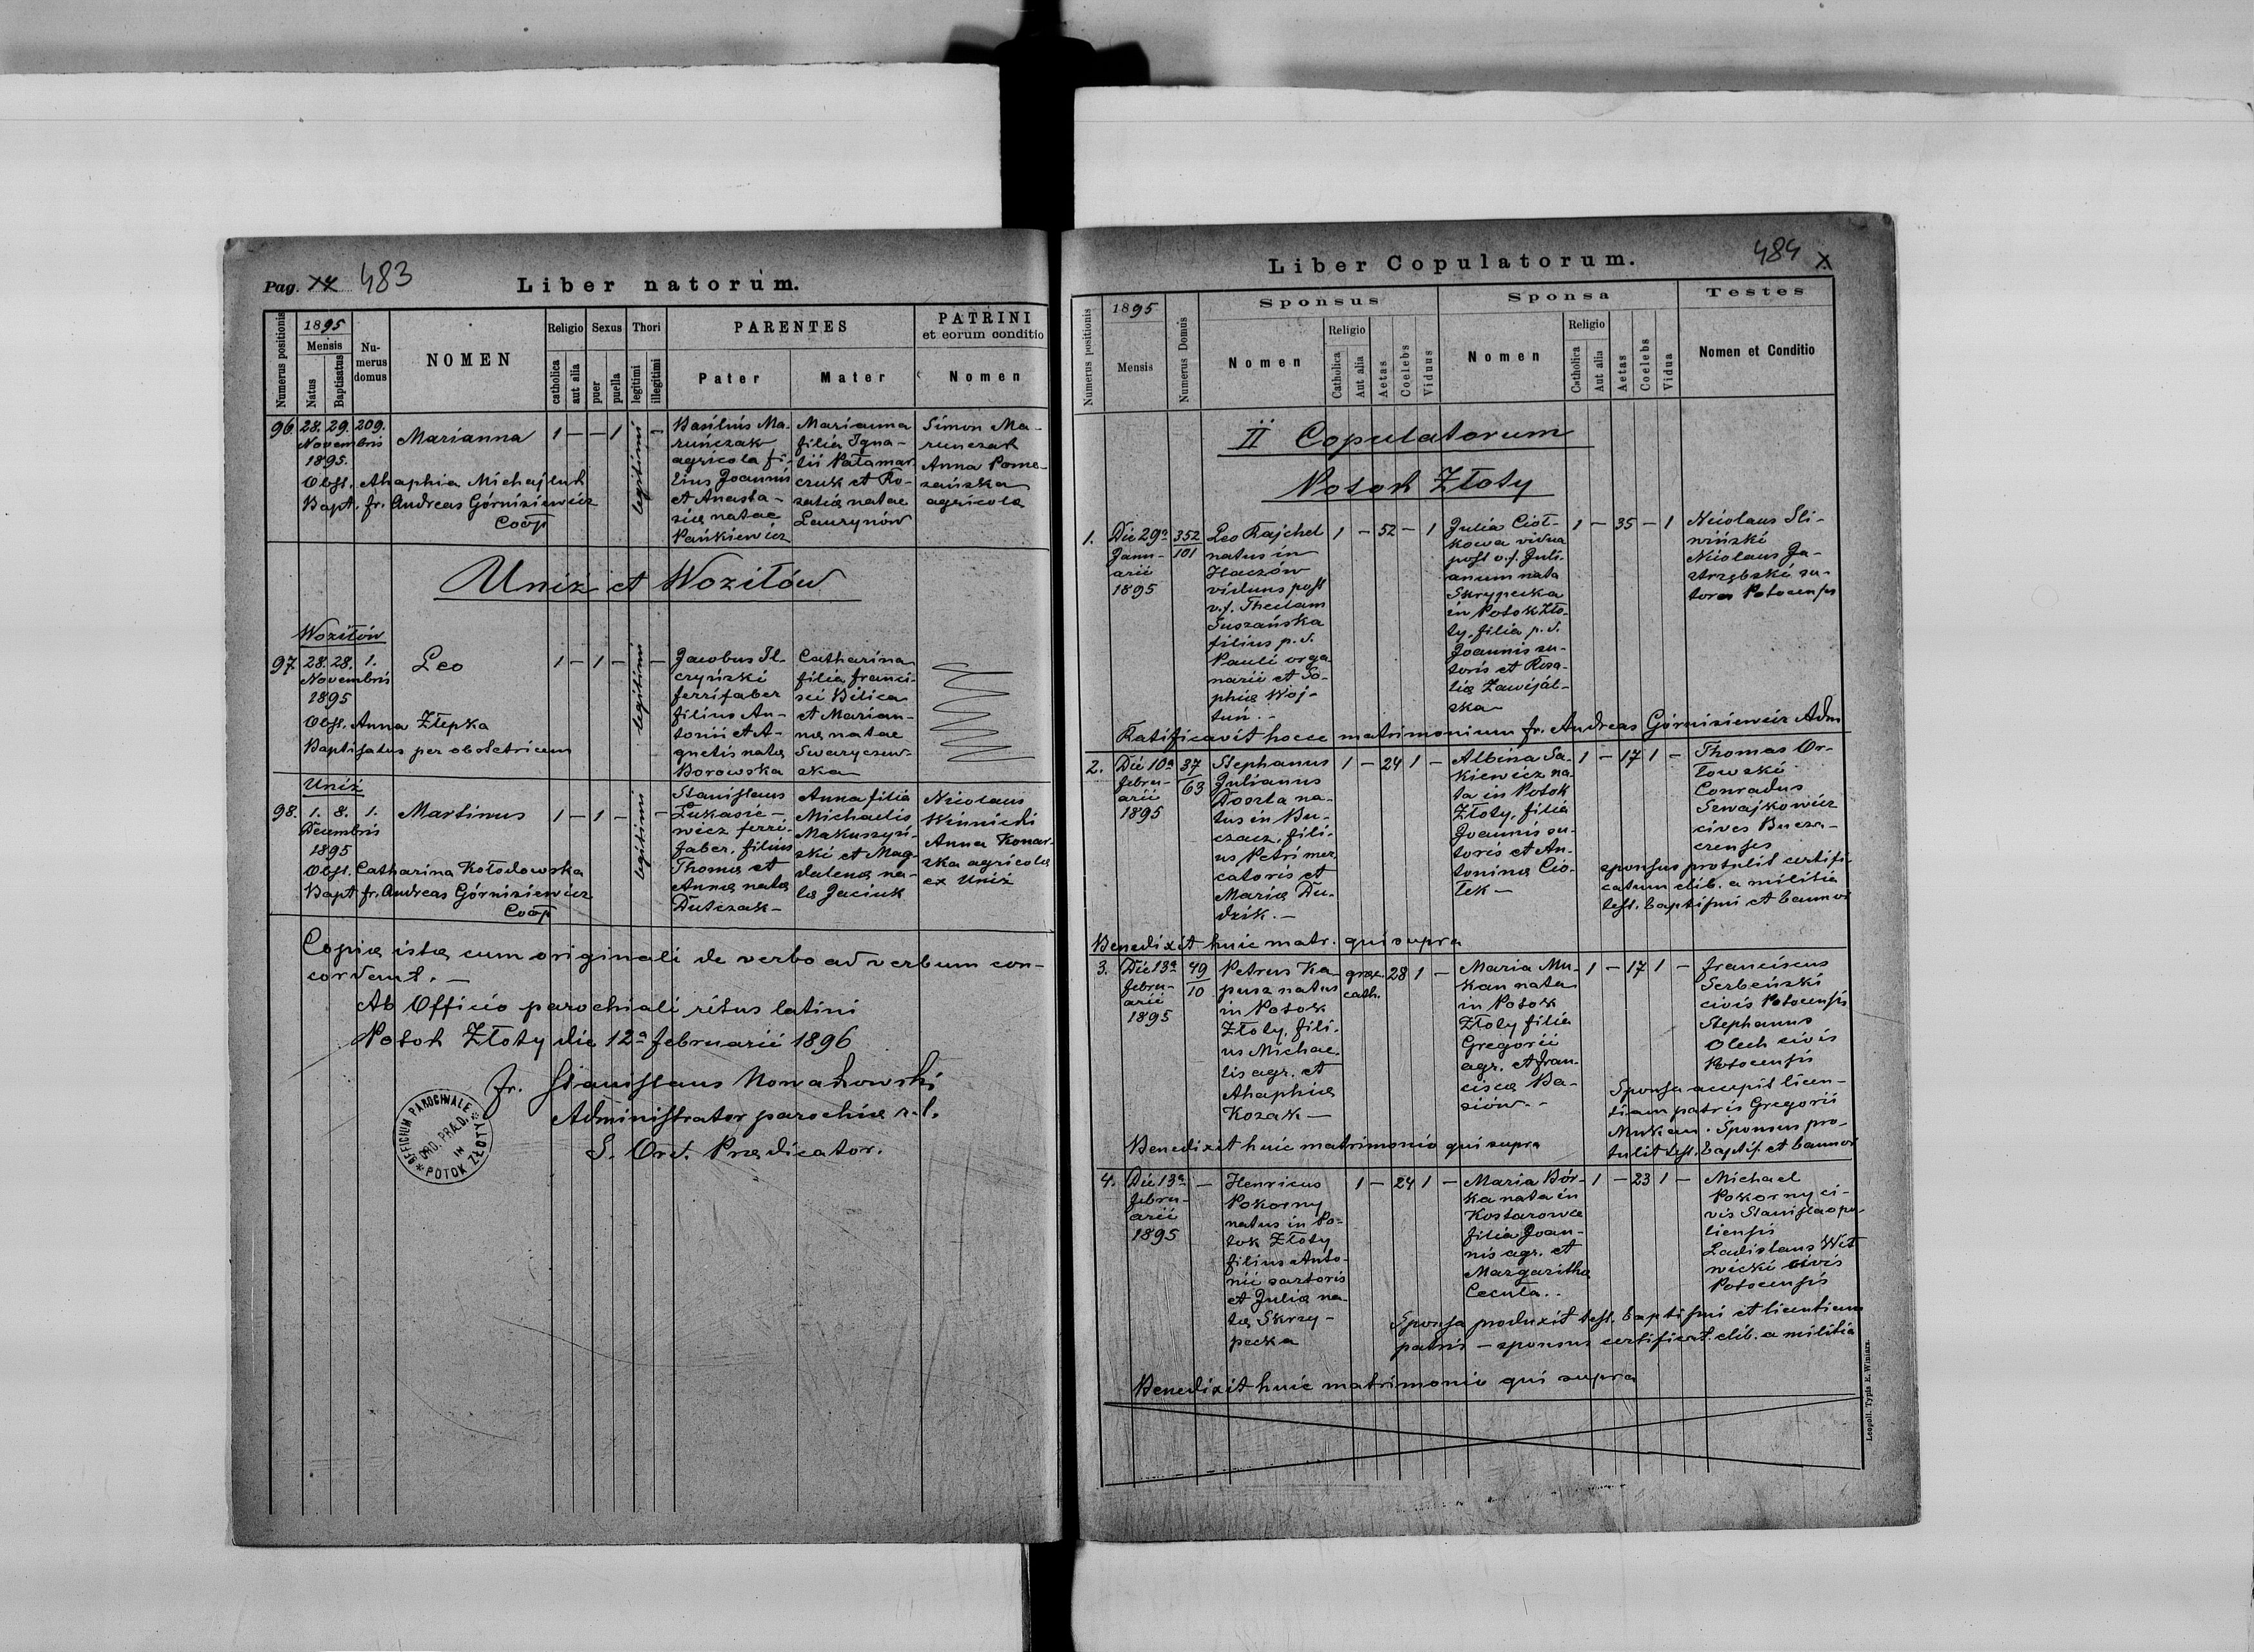 Pag. XX 483
Liber natorum.
Numerus positionis
1895
Mensis
Natus
Baptisatus
Nu-
merus
domus
NOMEN
Religio
catholica
aut alia
Sexus
puer
puella
Thori
legitimi
illegitimi
PARENTES
Pater
Mater
PATRINI
et eorum conditio
Nomen
96. 28. 29. 209.
Novembris
1895.
Marianna
1 – – 1
legitimi
Basilius Ma-
ruńczak
agricola fi-
lius Joannis
et Anasta-
siæ natae
Pańkiewicz
Marianna
filia Igna-
tii Pałamar
czuk et Ro-
zalia natae
Laurynów
Simon Ma-
runczak
Anna Pome-
zańska
agricola
Obst. Ahaphia Michajluk
Bapt. fr. Andreas Górnisiewicz
Coop
Uniż et Woziłów
Woziłów
97. 28. 28. 1.
Novembris
1895
Leo
1 – 1 – –
legitimi
Jacobus Il-
czyński
ferrifaber
filius An-
tonii et A-
gnetis nata
Borowska
Catharina
filia franci-
sci Bilica
et Marian-
na natae
Swarycsew-
ska
Obst. Anna Zlepka
Baptisatus per obstetricem
Uniż
98. 1. 8. 1.
Decembris
1895
Martinus
1 – 1 – –
legitimi
Stanislaus
Łukasie-
wicz ferri-
faber, filius
Thoma et
Anna nata
Dutczak –
Anna filia
Michaelis
Makuszyń-
ski et Mag-
dalena na-
ta Jaciuk
Nicolaus
Winnicki
Anna Konar-
ska agricola
ex Uniż
Obst. Catharina Kołodowska
Bapt fr. Andreas Górnisiewicz
Coop
Copia ista cum originali de verbo ad verbum con-
cordant. –
Ab Officio parochiali ritus latini
Potok Złoty die 12ª februarii 1896
fr. Stanislaus Nowakowski
Administrator parochiæ r. l.
S. Ord. Prædicator.
OFFICIUM PAROCHIALE
ORD. PRÆD.
IN
* POTOK ZŁOTY *
484 X
Liber Copulatorum.
Numerus positionis
1895
Mensis
Numerus Domus
Sponsus
Nomen
Religio
Catholica
Aut alia
Aetas
Coelebs
Viduus
Sponsa
Nomen
Religio
Catholica
Aut alia
Aetas
Coelebs
Vidua
Testes
Nomen et Conditio
II Copulatorum
Potok Złoty
1. Die 29ª
Janu-
arii
1895
352
101
Leo Rajchel
natus in
Haczów
viduus post
v.f. Theclam
Suszańska
filius p. d.
Pauli orga
narii et So-
phia Woj-
tuń. –
1 – 52 – 1
Julia Cioł-
kowa vidua
post v.f. Juli-
anum nata
Skrypecka
in Potok Zło-
ty, filia p. d.
Joannis su-
toris et Rosa-
lia Zawijal-
ska
1 – 35 – 1
Nicolaus Sli-
wiński
Nicolaus Ja-
strzębski su-
tores Potocensis
Ratificavit hocce matrimonium fr. Andreas Górnisiewicz Adm
2. Die 10ª
febru-
arii
1895
37
63
Stephanus
Julianus
Doszla na-
tus in Bu-
czacz, fili-
us Petri mer
catoris et
Maria Du-
dzik. –
1 – 24 1 –
Albina Sa-
kiewicz na-
ta in Potok
Złoty, filia
Joannis su-
toris et An-
tonina Cio-
łek –
1 – 17 1 –
Thomas Or-
łowski
Conradus
Szwajkowicz
cives Bucza-
czenses
sponsus protulit certifi-
catum elib. a militia
test. baptismi et bannos
Benedixit huic matr. qui supra
3. Die 13ª
febru-
arii
1895
49
10
Petrus Ka-
pusz natus
in Potok
Złoty, fili-
us Michae-
lis agr. et
Ahaphia
Kozak –
græc.
cath.
28 1 –
Maria Mu-
kan nata
in Potok
Złoty filia
Gregorii
agr. et fran-
cisca Ba-
siów. –
1 – 17 1 –
franciscus
Serbeński
civis Potocensis
Stephanus
Olech civis
Potocensis
Sponsa accepit licen-
tiam patris Gregorii
Mukan. Sponsus pro-
tulit test. baptis. et bannos
Benedixit huic matrimonio qui supra
4. Die 13ª
febru-
arii
1895
–
Henricus
Pokorny
natus in Po-
tok Złoty
filius Anto-
nii sartoris
et Julia na-
ta Skrzy-
pecka
1 – 24 1 –
Maria Bór-
ka nata in
Kostarowce
filia Joan-
nis agr. et
Margaritha
Cecuła. .
1 – 23 1 –
Michael
Pokorny ci-
vis Stanislaopo-
liensis
Ladislaus Wit
wicki civis
Potocensis
Sponsa produxit test. baptismi et licentiam
patris – sponsus certificat. elib. a militia
Benedixit huic matrimonio qui supra
Leopoli. Typis E. Winiarz.